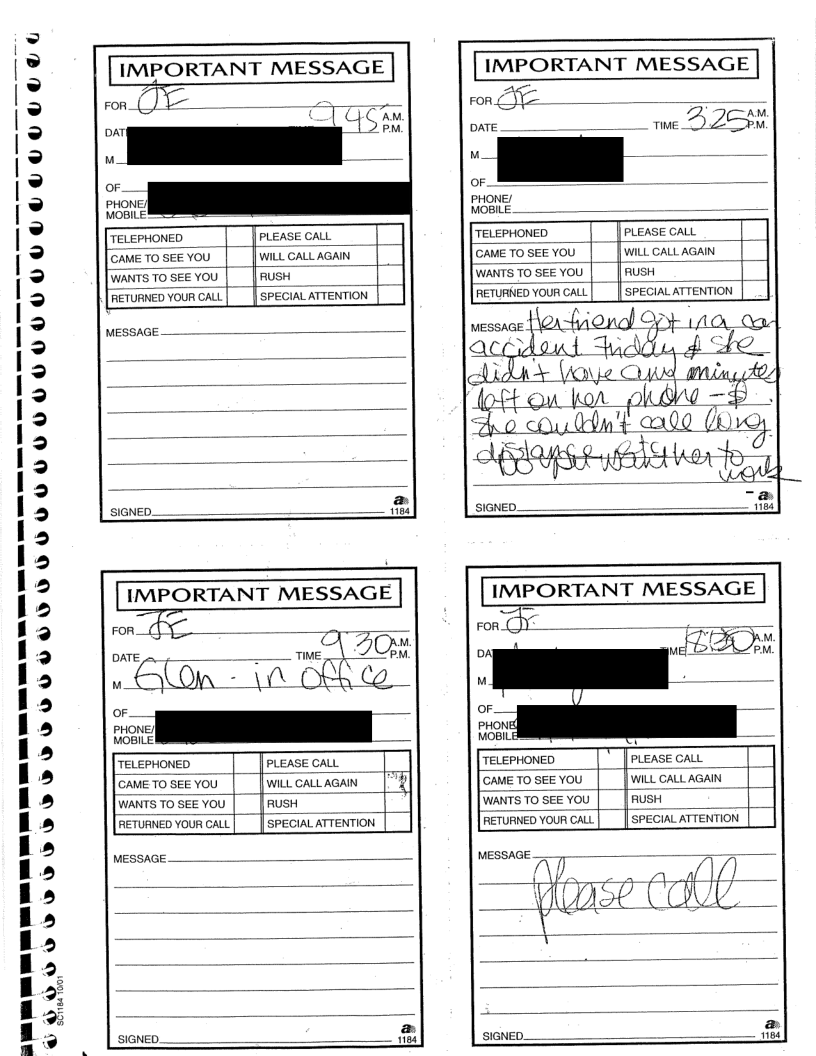 IMPORTANT MESSAGE
FOR JE
DATE TIME 9 45 A.M.
P.M.
M
OF
PHONE/
MOBILE
TELEPHONED PLEASE CALL
CAME TO SEE YOU WILL CALL AGAIN
WANTS TO SEE YOU RUSH
RETURNED YOUR CALL SPECIAL ATTENTION
MESSAGE
SIGNED
a
1184
IMPORTANT MESSAGE
FOR JE
DATE TIME 3:25 A.M.
P.M.
M
OF
PHONE/
MOBILE
TELEPHONED PLEASE CALL
CAME TO SEE YOU WILL CALL AGAIN
WANTS TO SEE YOU RUSH
RETURNED YOUR CALL SPECIAL ATTENTION
MESSAGE Her friend got in a car
accident Friday & she
didn't have any minutes
left on her phone - &
She couldn't call long
distance
Do you want her to
work
SIGNED
a
1184
IMPORTANT MESSAGE
FOR JE
DATE TIME 9:30 A.M.
P.M.
M Glen - in office
OF
PHONE/
MOBILE
TELEPHONED PLEASE CALL
CAME TO SEE YOU WILL CALL AGAIN
WANTS TO SEE YOU RUSH
RETURNED YOUR CALL SPECIAL ATTENTION
MESSAGE
SIGNED
a
1184
IMPORTANT MESSAGE
FOR JE
DA TIME 8:30 A.M.
P.M.
M
OF
PHONE
MOBILE
TELEPHONED PLEASE CALL
CAME TO SEE YOU WILL CALL AGAIN
WANTS TO SEE YOU RUSH
RETURNED YOUR CALL SPECIAL ATTENTION
MESSAGE
please call
SIGNED
a
1184
SC1184 10/01